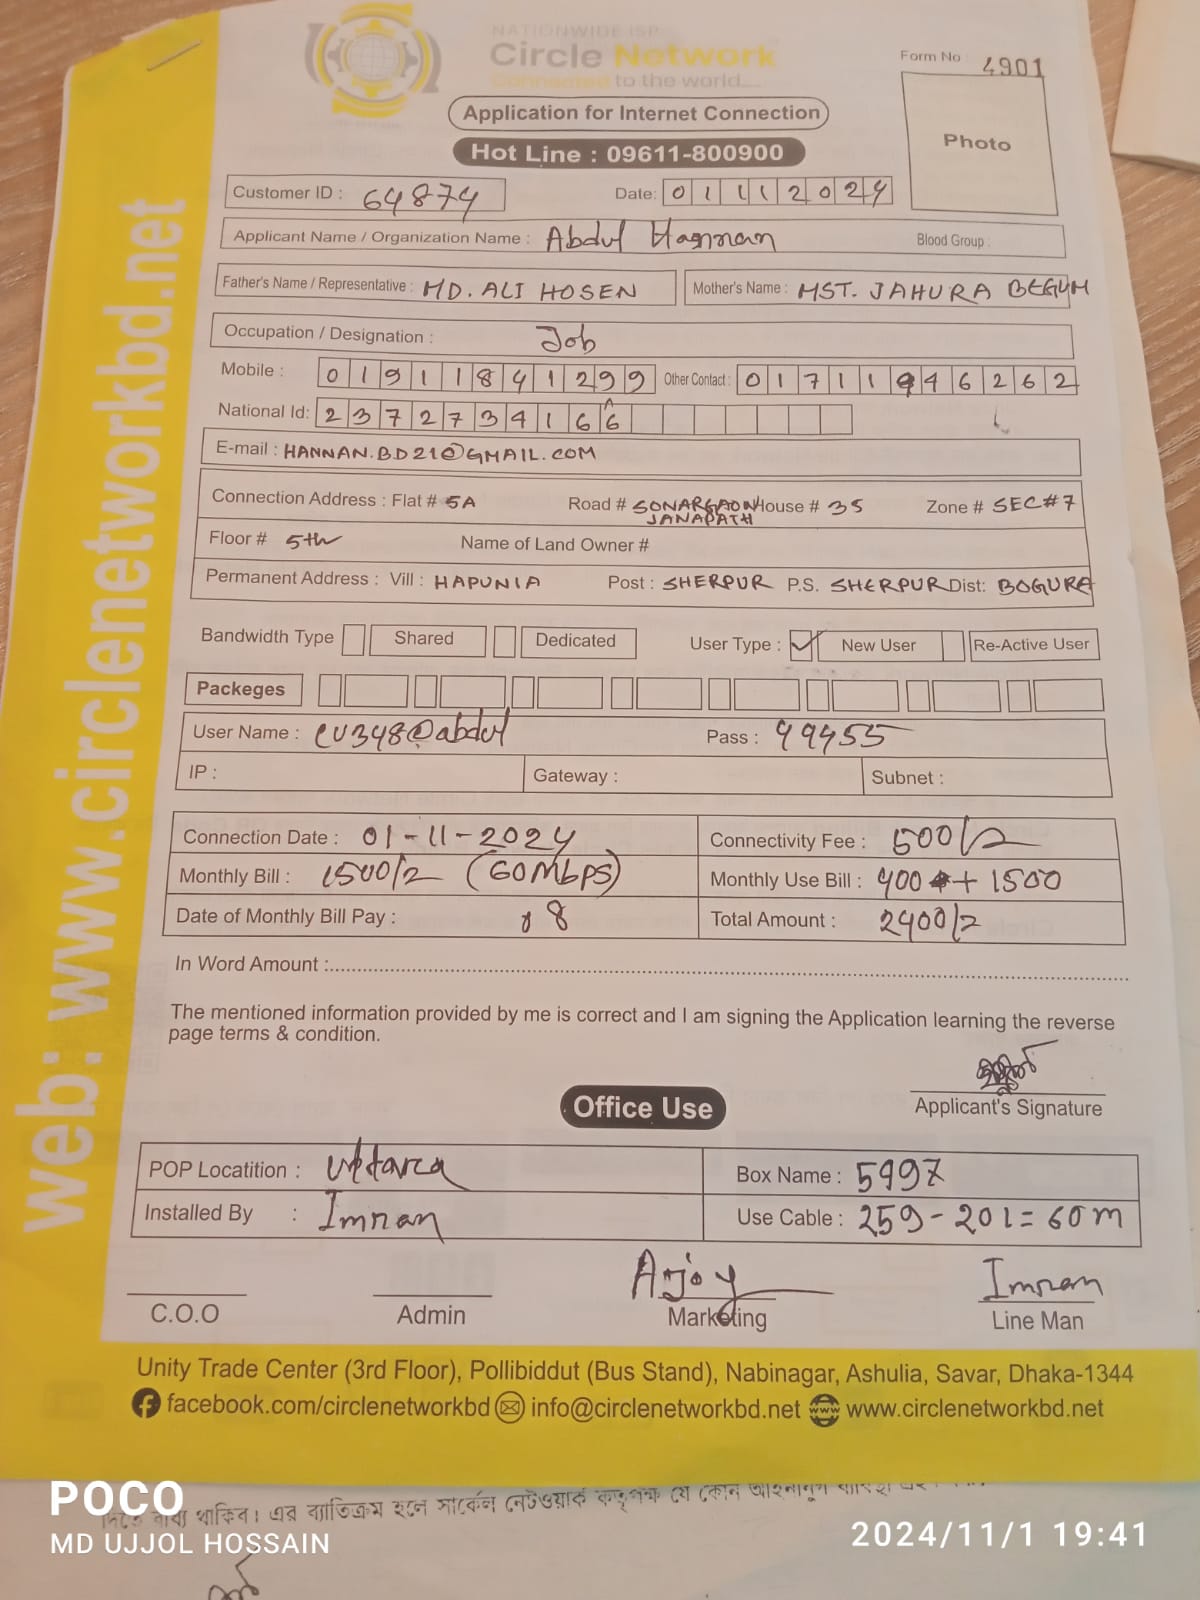 NATIONWIDE ISP
Circle Network
Connected to the world...
Form No : 4901
Application for Internet Connection
Photo
Hot Line : 09611-800900
Customer ID : 64874 Date: 01112024
Applicant Name / Organization Name : Abdul Hannan Blood Group :
Father's Name / Representative : MD. ALI HOSEN Mother's Name : MST. JAHURA BEGUM
Occupation / Designation : Job
Mobile : 01911841299 Other Contact : 01711946262
National Id: 2372734166
E-mail : HANNAN.BD21@GMAIL.COM
Connection Address : Flat # 5A Road # SONARGAON JANAPATH House # 35 Zone # SEC#7
Floor # 5th Name of Land Owner #
Permanent Address : Vill : HAPUNIA Post : SHERPUR P.S. SHERPUR Dist: BOGURA
Bandwidth Type Shared Dedicated User Type : ✓ New User Re-Active User
Packeges
User Name : CU348@abdul Pass : 49455
IP : Gateway : Subnet :
Connection Date : 01-11-2024 Connectivity Fee : 500/2
Monthly Bill : 1500/2 (60Mbps) Monthly Use Bill : 400 + 1500
Date of Monthly Bill Pay : 8 Total Amount : 2400/2
In Word Amount :
The mentioned information provided by me is correct and I am signing the Application learning the reverse
page terms & condition.
Applicant's Signature
Office Use
POP Locatition : Uttara Box Name : 5997
Installed By : Imran Use Cable : 259-201=60m
Arjoy Imran
C.O.O Admin Marketing Line Man
Unity Trade Center (3rd Floor), Pollibiddut (Bus Stand), Nabinagar, Ashulia, Savar, Dhaka-1344
facebook.com/circlenetworkbd info@circlenetworkbd.net www.circlenetworkbd.net
web: www.circlenetworkbd.net
থাকিব। এর ব্যাতিক্রম হলে সার্কেল নেটওয়ার্ক কতৃপক্ষ যে কোন
POCO
MD UJJOL HOSSAIN
2024/11/1 19:41